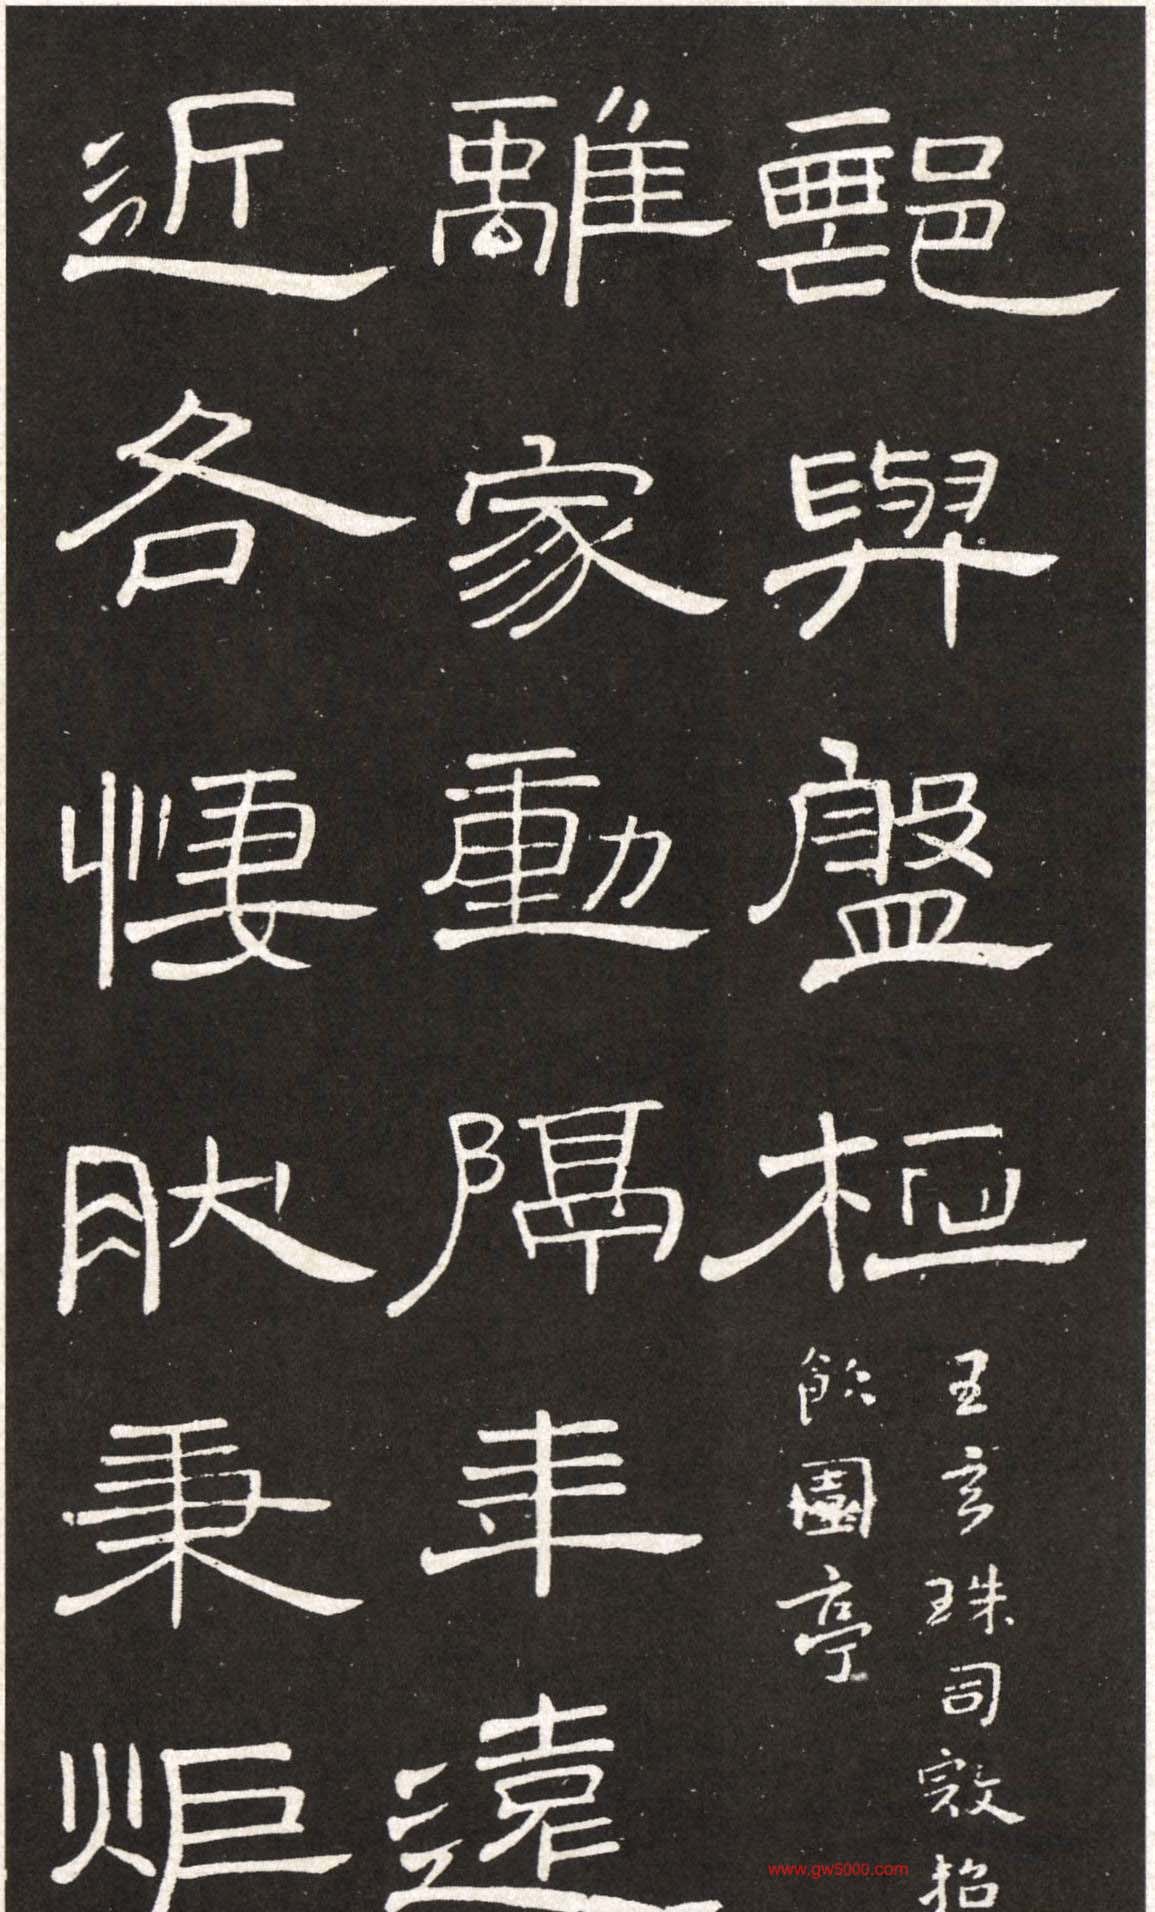 與盤桓
王玄珠司寇招
飲園亭
離家動隔年遠
近各悽肰秉炬
www.gw5000.com